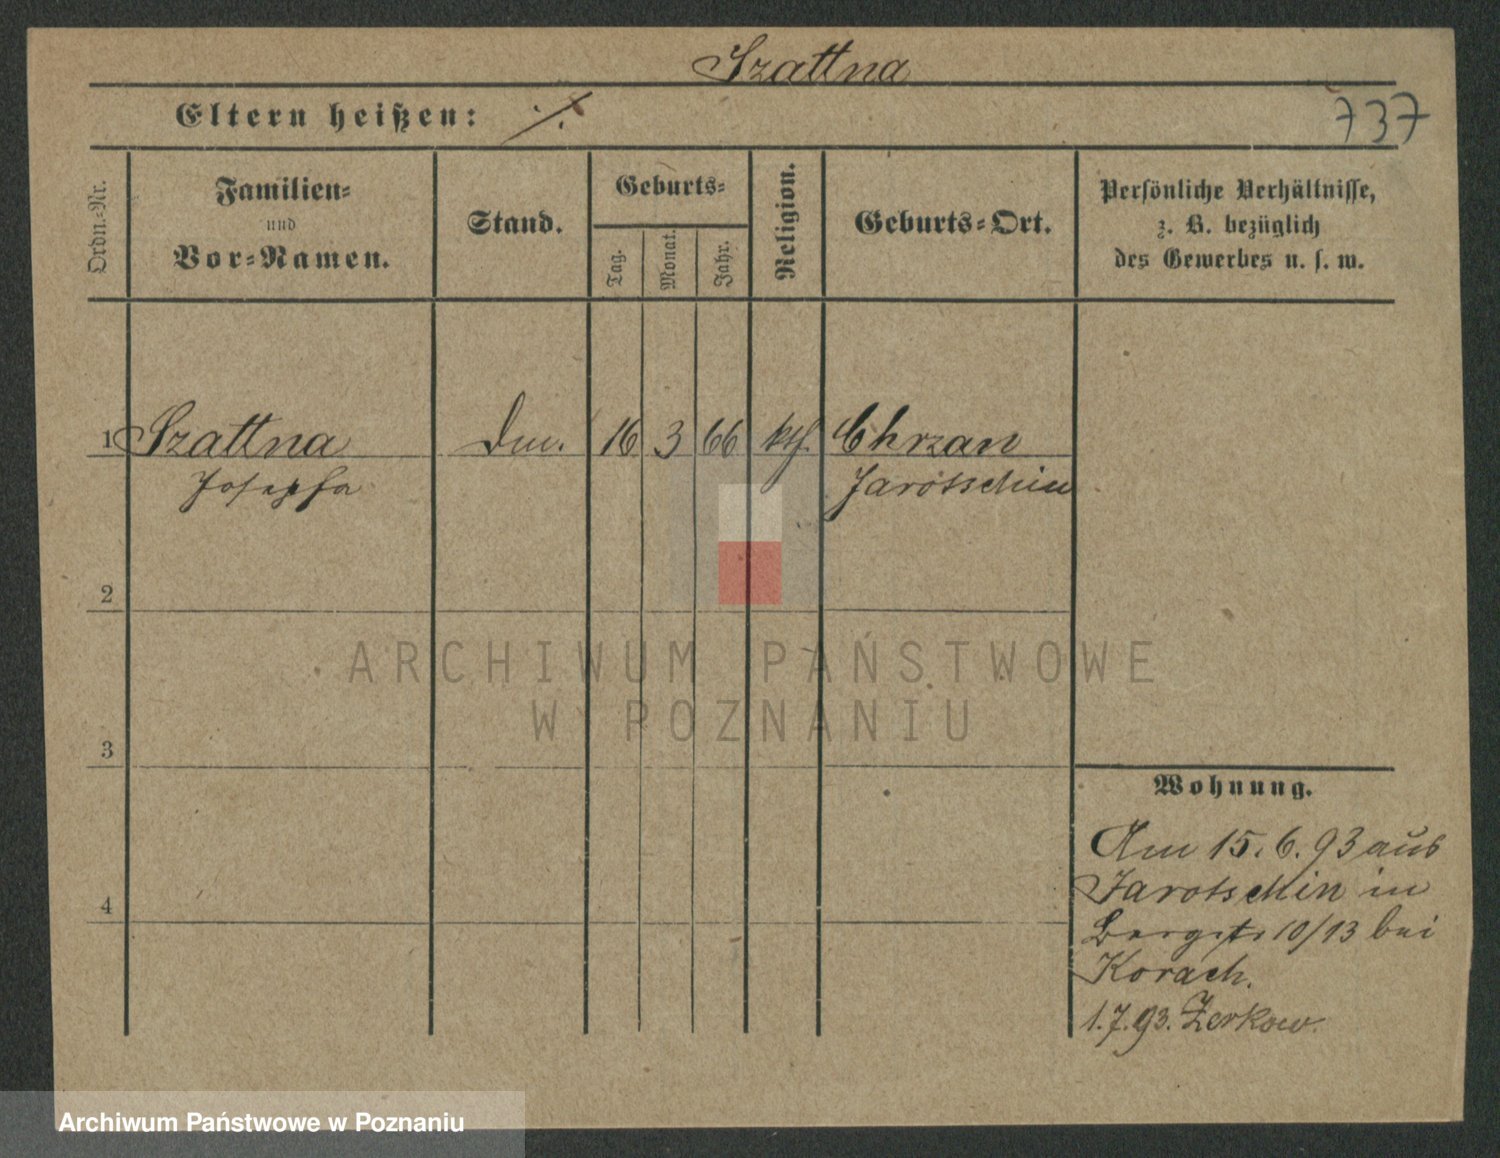 Szattna
Eltern heißen: ·/.
737
Ordn.-Nr.
Familien-
und
Vor-Namen.
Stand.
Geburts-
Tag.
Monat.
Jahr.
Religion.
Geburts-Ort.
Persönliche Verhältnisse,
z. B. bezüglich
des Gewerbes u. s. w.
1 Szattna 16 3 66 kth. Chrzan
Josepha Jarotschin
2
3
4
Wohnung.
Am 15.6.93 aus
Jarotschin in
Bergstr 10/13 bei
Korach.
1.7.93. Zerkow.
ARCHIWUM PAŃSTWOWE
W POZNANIU
Archiwum Państwowe w Poznaniu